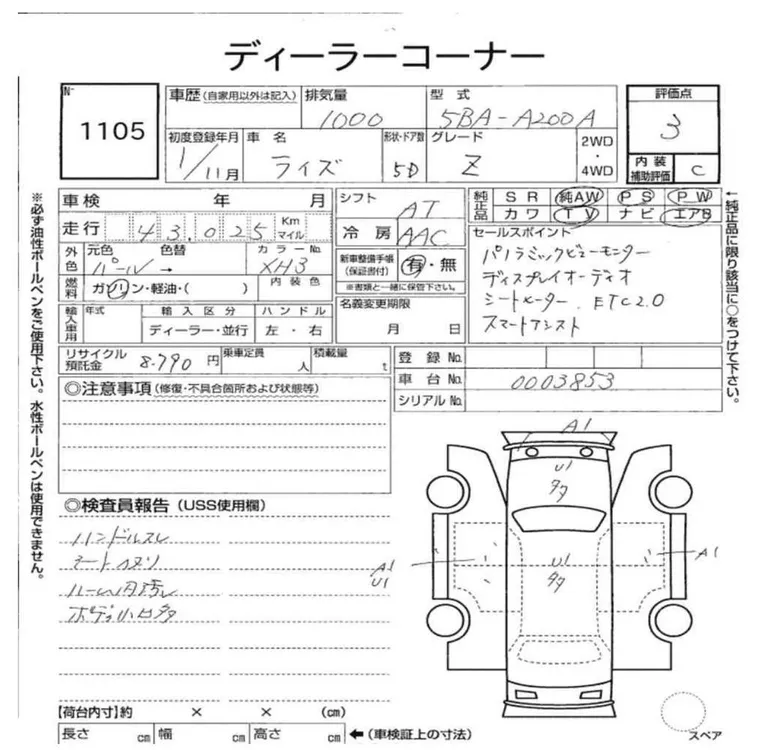 ディーラーコーナー
No. 1105
車歴（自家用以外は記入） 排気量 1000 型式 5BA-A200A 評価点 3
初度登録年月 1/11月 車名 ライズ 形状・ドア数 5D グレード Z 2WD・4WD 内装補助評価 C
車検 年 月 シフト AT
純正品 SR 純AW PS PW
カワ TV ナビ エアB
走行 43,025 Km マイル 冷房 AAC
セールスポイント
パノラミックビューモニター
ディスプレイオーディオ
シートヒーター、ETC2.0
スマートアシスト
外色 元色 パール 色替 → カラーNo. XH3
新車整備手帳（保証書付） 有・無
※書類と一緒に保管下さい。
燃料 ガソリン・軽油・( ) 内装色
名義変更期限 月 日
輸入車用 年式 輸入区分 ディーラー・並行 ハンドル 左・右
リサイクル預託金 8.790 円 乗車定員 人 積載量 t
登録No.
車台No. 0003853
シリアルNo.
◎注意事項（修復・不具合箇所および状態等）
◎検査員報告（USS使用欄）
ハンドルスレ
ルーム内汚レ
ボディ小キズ多
A1
U1
タワ
U1
タワ
A1
U1
A1
【荷台内寸】約 × × (cm)
長さ cm 幅 cm 高さ cm ←（車検証上の寸法）
スペア
※必ず油性ボールペンをご使用下さい。水性ボールペンは使用できません。
←純正品に限り該当に○をつけて下さい。